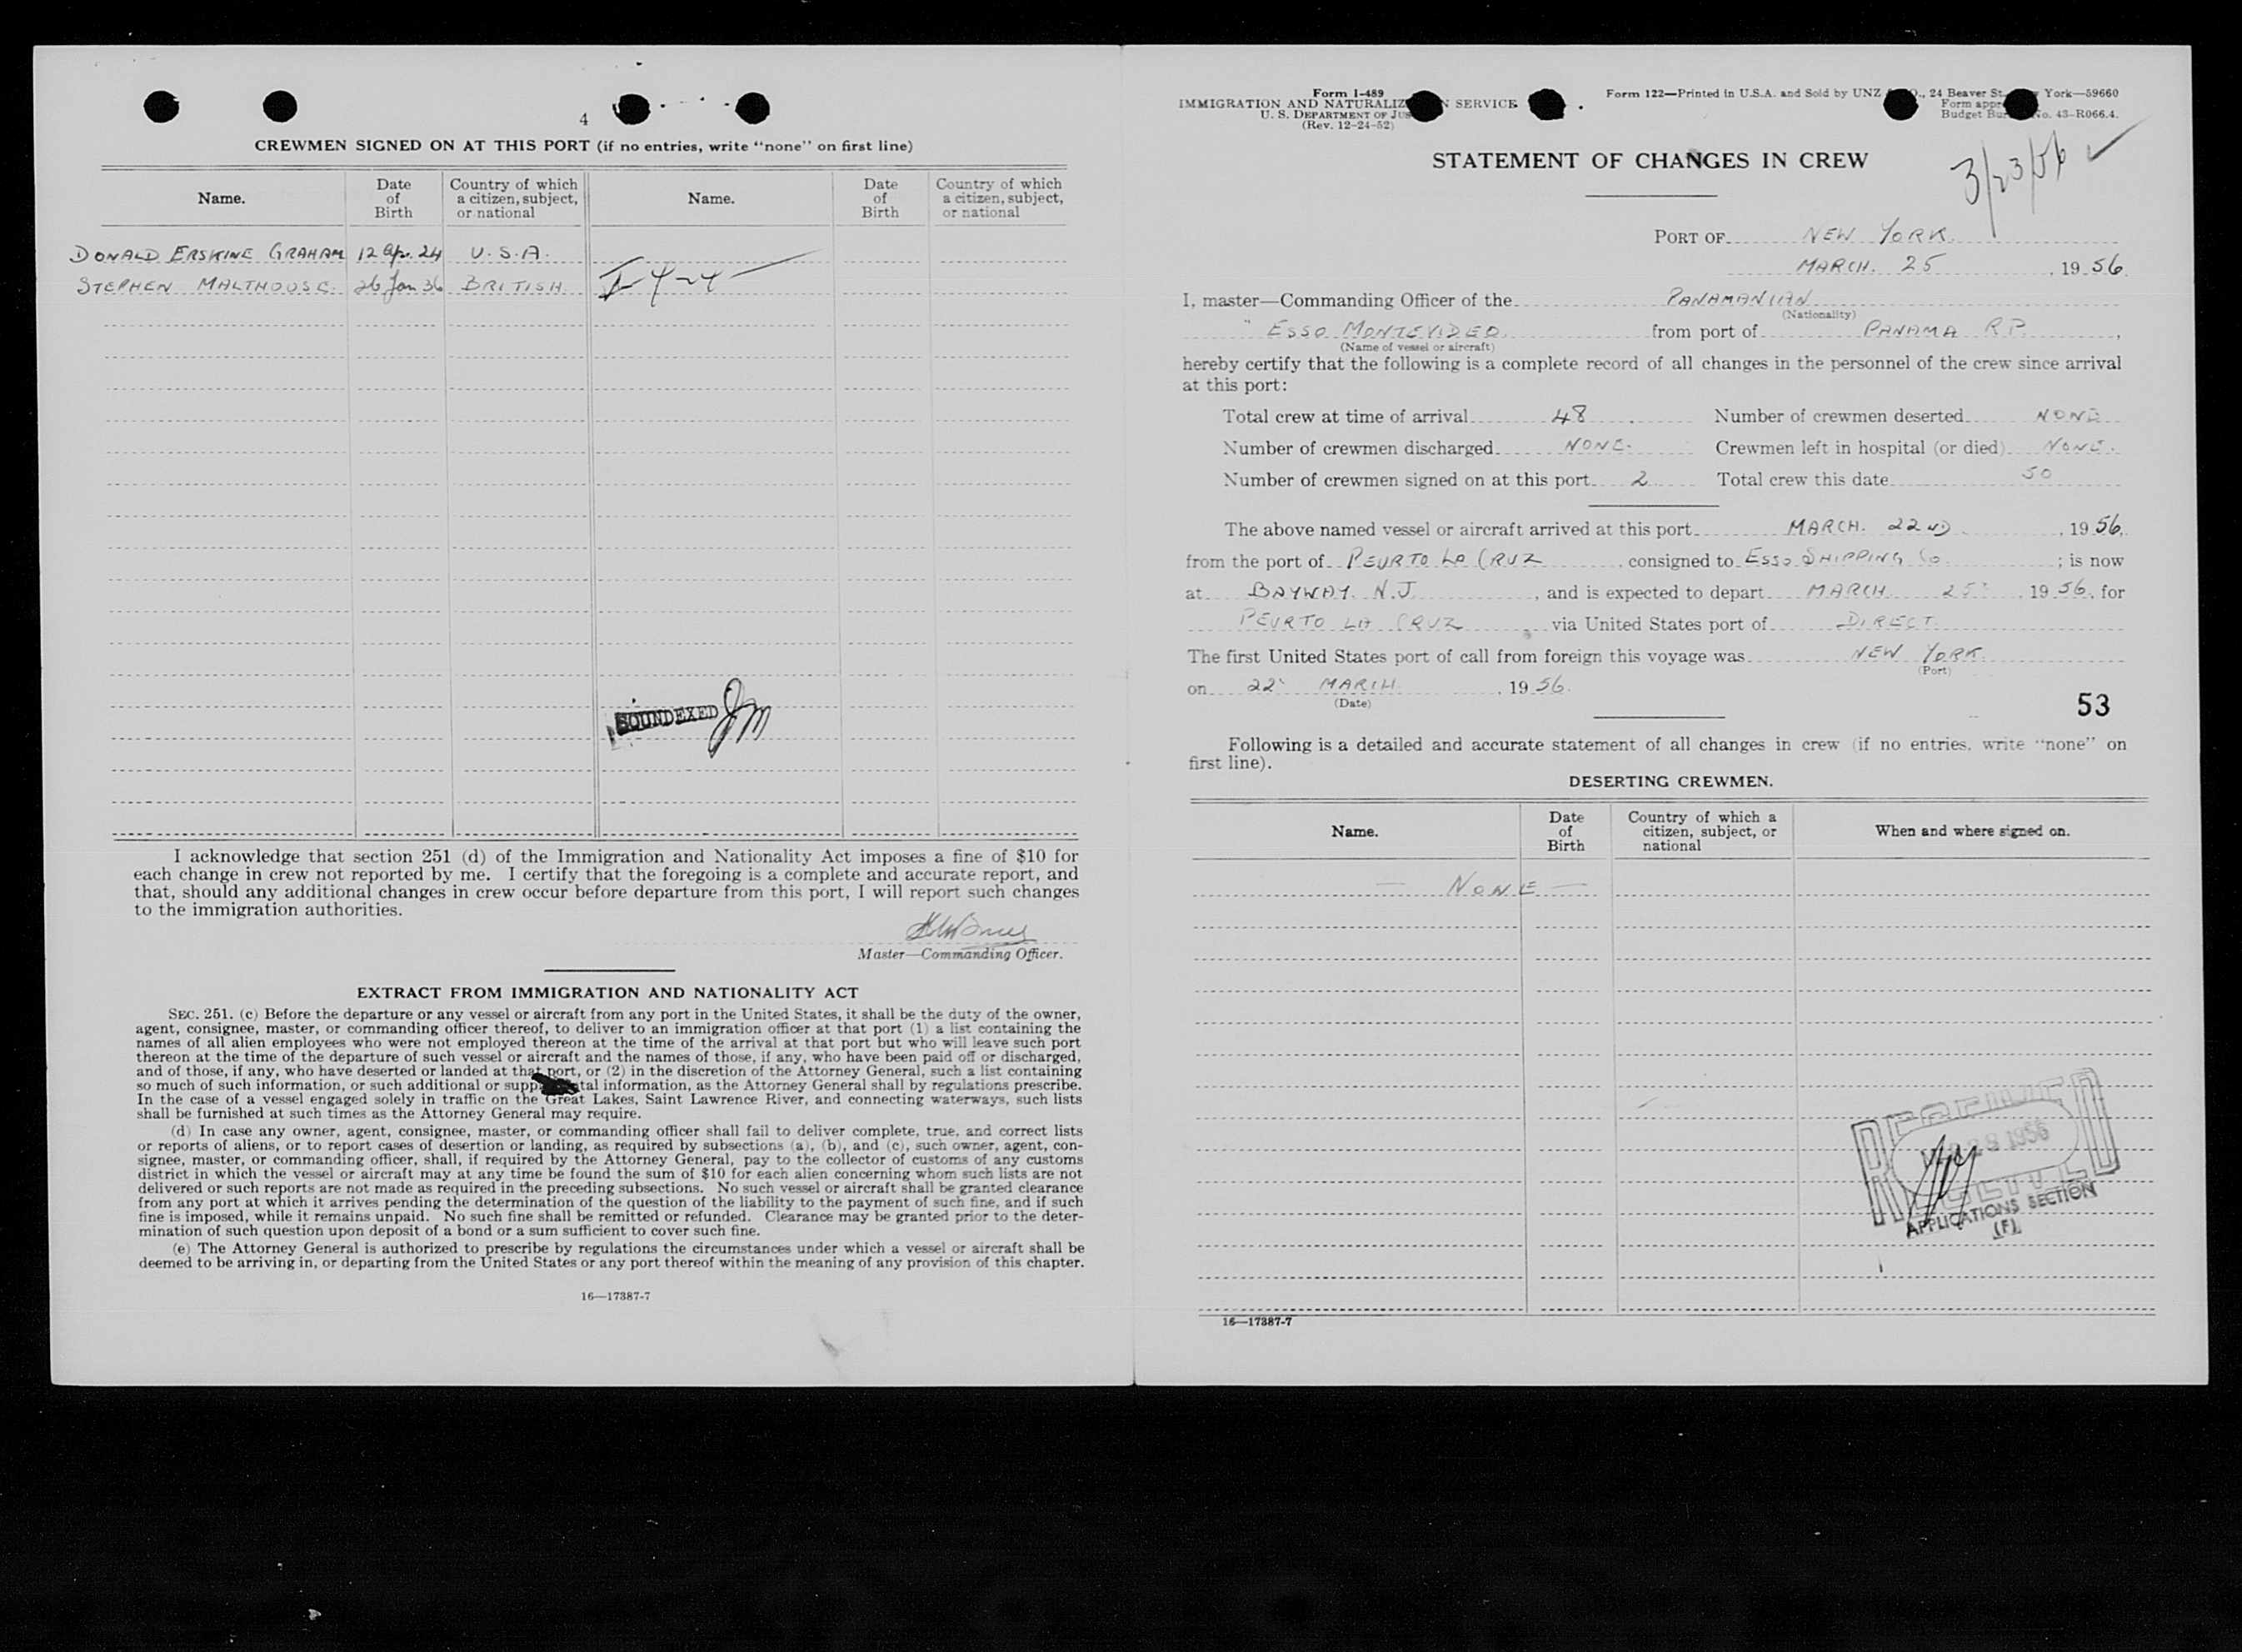 4
CREWMEN SIGNED ON AT THIS PORT (if no entries, write "none" on first line)
Name. Date of Birth Country of which a citizen, subject, or national Name. Date of Birth Country of which a citizen, subject, or national
DONALD ERSKINE GRAHAM 12 Apr. 24 U.S.A.
STEPHEN MALTHOUSE. 26 Jan 36 BRITISH
SOUNDEXED JM
I acknowledge that section 251 (d) of the Immigration and Nationality Act imposes a fine of $10 for
each change in crew not reported by me. I certify that the foregoing is a complete and accurate report, and
that, should any additional changes in crew occur before departure from this port, I will report such changes
to the immigration authorities.
Master—Commanding Officer.
EXTRACT FROM IMMIGRATION AND NATIONALITY ACT
SEC. 251. (c) Before the departure or any vessel or aircraft from any port in the United States, it shall be the duty of the owner,
agent, consignee, master, or commanding officer thereof, to deliver to an immigration officer at that port (1) a list containing the
names of all alien employees who were not employed thereon at the time of the arrival at that port but who will leave such port
thereon at the time of the departure of such vessel or aircraft and the names of those, if any, who have been paid off or discharged,
and of those, if any, who have deserted or landed at that port, or (2) in the discretion of the Attorney General, such a list containing
so much of such information, or such additional or supplemental information, as the Attorney General shall by regulations prescribe.
In the case of a vessel engaged solely in traffic on the Great Lakes, Saint Lawrence River, and connecting waterways, such lists
shall be furnished at such times as the Attorney General may require.
(d) In case any owner, agent, consignee, master, or commanding officer shall fail to deliver complete, true, and correct lists
or reports of aliens, or to report cases of desertion or landing, as required by subsections (a), (b), and (c), such owner, agent, con-
signee, master, or commanding officer, shall, if required by the Attorney General, pay to the collector of customs of any customs
district in which the vessel or aircraft may at any time be found the sum of $10 for each alien concerning whom such lists are not
delivered or such reports are not made as required in the preceding subsections. No such vessel or aircraft shall be granted clearance
from any port at which it arrives pending the determination of the question of the liability to the payment of such fine, and if such
fine is imposed, while it remains unpaid. No such fine shall be remitted or refunded. Clearance may be granted prior to the deter-
mination of such question upon deposit of a bond or a sum sufficient to cover such fine.
(e) The Attorney General is authorized to prescribe by regulations the circumstances under which a vessel or aircraft shall be
deemed to be arriving in, or departing from the United States or any port thereof within the meaning of any provision of this chapter.
16—17387-7
Form I-489
IMMIGRATION AND SERVICE
U. S. DEPARTMENT OF
(Rev. 12-24-52)
Form 122—Printed in U.S.A. and Sold by UNZ 24 Beaver St. York—59660
Form
Budget No. 43-R066.4.
STATEMENT OF CHANGES IN CREW
3/23/56
PORT OF NEW YORK
MARCH. 25, 1956
I, master—Commanding Officer of the PANAMANIAN
(Nationality)
"ESSO MONTEVIDEO. from port of PANAMA R.P.,
(Name of vessel or aircraft)
hereby certify that the following is a complete record of all changes in the personnel of the crew since arrival
at this port:
Total crew at time of arrival 48 Number of crewmen deserted NONE
Number of crewmen discharged NONE. Crewmen left in hospital (or died) NONE.
Number of crewmen signed on at this port 2 Total crew this date 50
The above named vessel or aircraft arrived at this port MARCH. 22ND, 1956,
from the port of PEURTO LA CRUZ, consigned to ESSO SHIPPING Co; is now
at BAYWAY. N.J., and is expected to depart MARCH 25, 1956, for
PEURTO LA CRUZ via United States port of DIRECT.
The first United States port of call from foreign this voyage was NEW YORK.
(Port)
on 22 MARCH, 1956.
(Date)
53
Following is a detailed and accurate statement of all changes in crew (if no entries, write "none" on
first line).
DESERTING CREWMEN.
Name. Date of Birth Country of which a citizen, subject, or national When and where signed on.
— NONE —
RECEIVED
1956
APPLICATIONS SECTION
(F)
16—17387-7